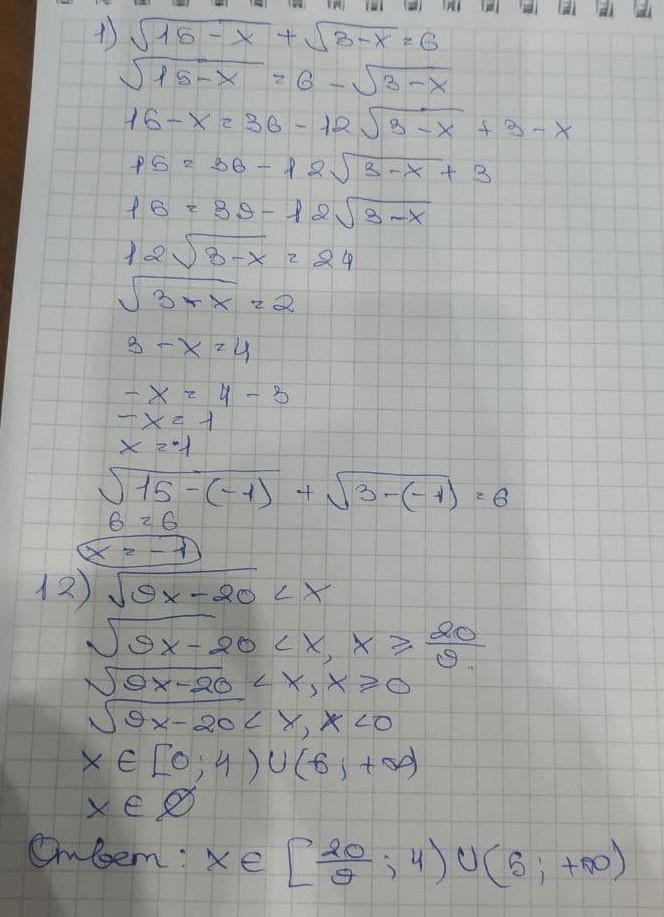 1) √15-x + √3-x = 6
√15-x = 6 - √3-x
15-x = 36 - 12√3-x + 3-x
15 = 36 - 12√3-x + 3
15 = 39 - 12√3-x
12√3-x = 24
√3-x = 2
3-x = 4
-x = 4-3
-x = 1
x = -1
√15-(-1) + √3-(-1) = 6
6 = 6
x = -1
12) √9x-20 < x
√9x-20 < x, x ⩾ 20/9
√9x-20 < x, x ⩾ 0
√9x-20 < x, x < 0
x ∈ [0; 4) ∪ (5; +∞)
x ∈ ∅
Ответ: x ∈ [20/9; 4) ∪ (5; +∞)